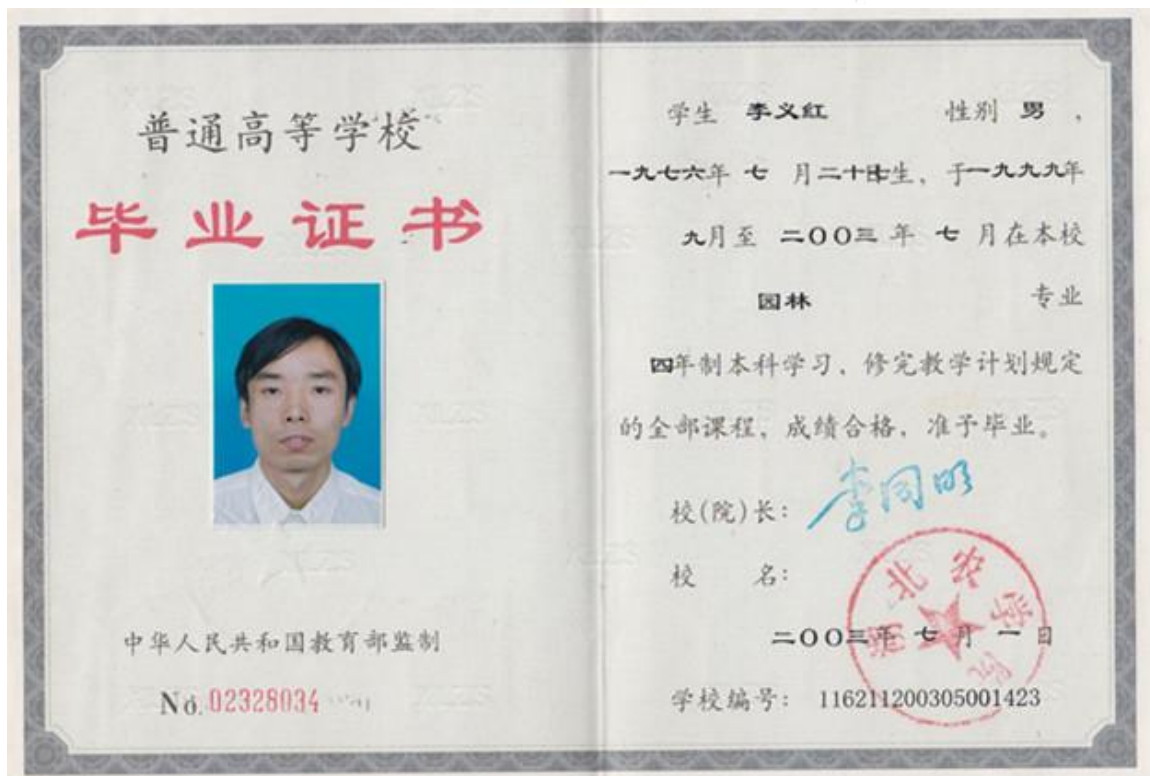 普通高等学校
毕业证书
中华人民共和国教育部监制
No. 02328034
学生 李义红 性别 男 ，
一九七六年 七 月二十七日生，于一九九九年
九月至 二〇〇三 年 七 月在本校
园林 专业
四年制本科学习，修完教学计划规定
的全部课程，成绩合格，准予毕业。
校(院)长： 李同明
校 名：
湖北农学院
二〇〇三年 七 月 一 日
学校编号： 116211200305001423